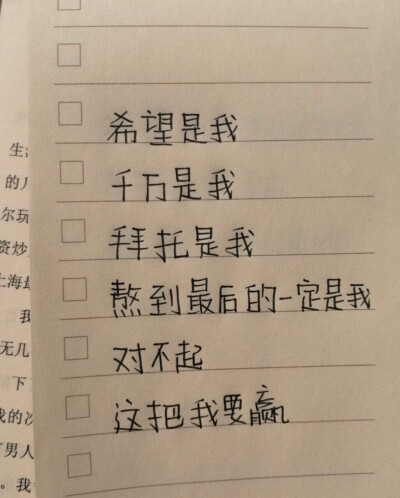 希望是我
千万是我
拜托是我
熬到最后的一定是我
对不起
这把我要赢
生
的
尔玩
资炒
上海
我
无几
下
我的次
男人
。我